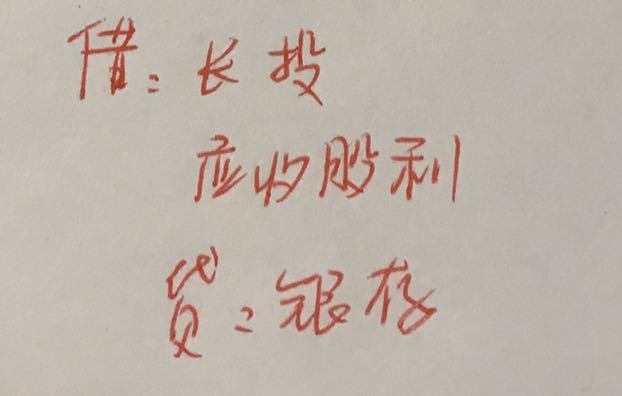 借：长投
应收股利
贷：银存